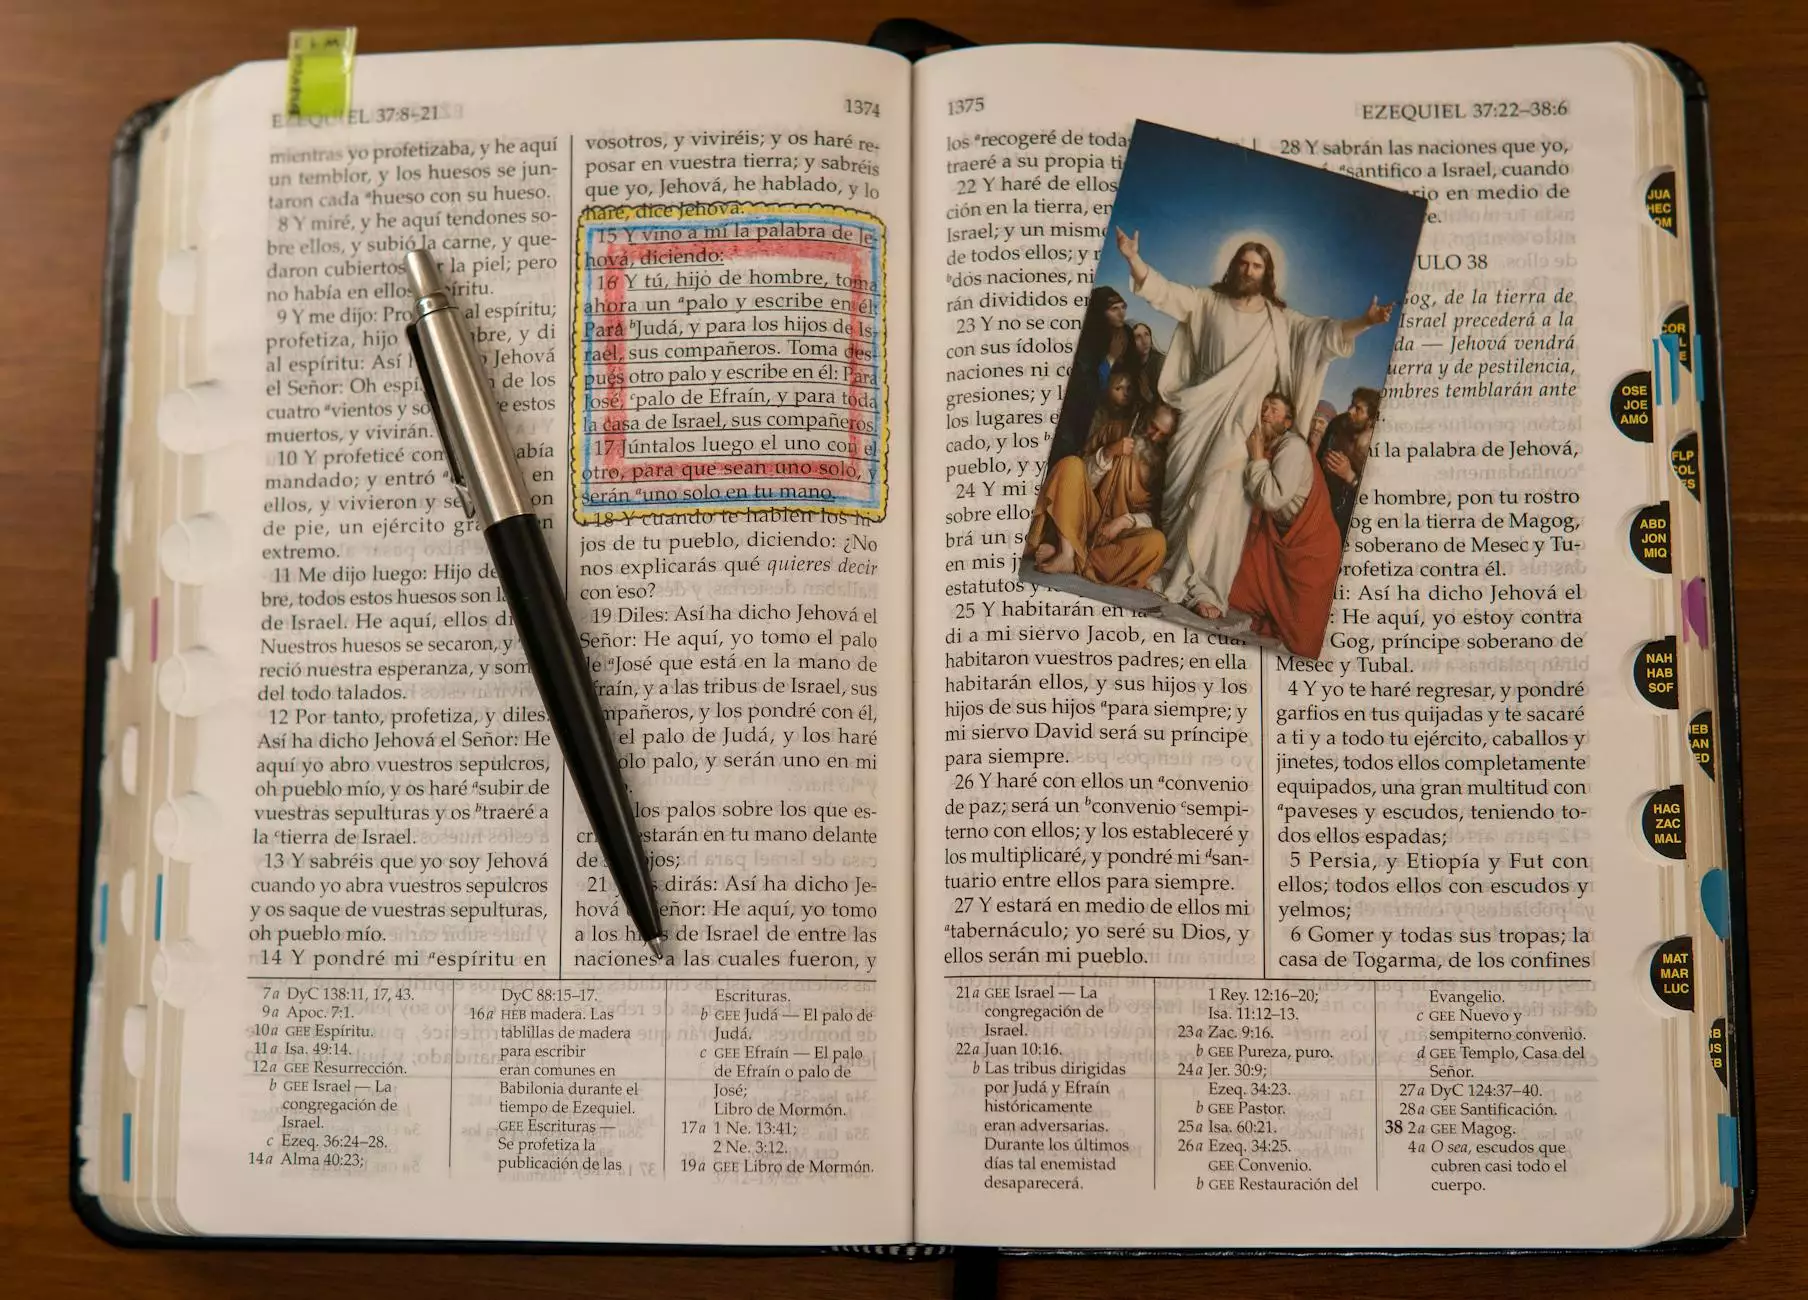 EZEQUIEL 37:8–21
1374
mientras yo profetizaba, y he aquí
un temblor, y los huesos se jun-
taron cada ᵃhueso con su hueso.
8 Y miré, y he aquí tendones so-
bre ellos, y subió la carne, y que-
daron cubiertos la piel; pero
no había en ellos
9 Y me dijo: al espíritu;
profetiza, hijo y di
al espíritu: Así Jehová
el Señor: Oh de los
cuatro ᵃvientos y estos
muertos, y vivirán.
10 Y profeticé
mandado; y entró en
ellos, y vivieron y
de pie, un ejército
extremo.
11 Me dijo luego: Hijo de
bre, todos estos huesos son
de Israel. He aquí, ellos
Nuestros huesos se secaron, y
reció nuestra esperanza, y
del todo talados.
12 Por tanto, profetiza, y diles:
Así ha dicho Jehová el Señor: He
aquí yo abro vuestros sepulcros,
oh pueblo mío, y os haré ᵃsubir de
vuestras sepulturas y os ᵇtraeré a
la ᶜtierra de Israel.
13 Y sabréis que yo soy Jehová
cuando yo abra vuestros sepulcros
y os saque de vuestras sepulturas,
oh pueblo mío.
14 Y pondré mi ᵃespíritu en
vosotros, y viviréis; y os haré re-
posar en vuestra tierra; y sabréis
que yo, Jehová, he hablado, y lo
haré, dice Jehová.
15 Y vino a mí la palabra de Je-
hová, diciendo:
16 Y tú, hijo de hombre, toma
ahora un ᵃpalo y escribe en él:
Para ᵇJudá, y para los hijos de Is-
rael, sus compañeros. Toma des-
pués otro palo y escribe en él: Para
José, ᶜpalo de Efraín, y para toda
la casa de Israel, sus compañeros.
17 Júntalos luego el uno con el
otro, para que sean uno solo, y
serán ᵃuno solo en tu mano.
18 Y cuando te hablen los hi-
jos de tu pueblo, diciendo: ¿No
nos explicarás qué quieres decir
con eso?
19 Diles: Así ha dicho Jehová el
Señor: He aquí, yo tomo el palo
de ᵃJosé que está en la mano de
y a las tribus de Israel, sus
y los pondré con él,
el palo de Judá, y los haré
palo, y serán uno en mi
los palos sobre los que es-
estarán en tu mano delante
de
21 dirás: Así ha dicho Je-
hová He aquí, yo tomo
a los de Israel de entre las
naciones a las cuales fueron, y
7a DyC 138:11, 17, 43.
9a Apoc. 7:1.
10a GEE Espíritu.
11a Isa. 49:14.
12a GEE Resurrección.
b GEE Israel — La
congregación de
Israel.
c Ezeq. 36:24–28.
14a Alma 40:23;
DyC 88:15–17.
16a HEB madera. Las
tablillas de madera
para escribir
eran comunes en
Babilonia durante el
tiempo de Ezequiel.
GEE Escrituras —
Se profetiza la
publicación de las
Escrituras.
b GEE Judá — El palo de
Judá.
c GEE Efraín — El palo
de Efraín o palo de
José;
Libro de Mormón.
17a 1 Ne. 13:41;
2 Ne. 3:12.
19a GEE Libro de Mormón.
1375
EZEQUIEL 37:22–38:6
los ᵃrecogeré de
traeré a su propia
22 Y haré de ellos
ción en la tierra, en
Israel; y un
de todos ellos; y
ᵇdos naciones, ni
rán divididos
23 Y no se
con sus ídolos
naciones ni
gresiones; y
los lugares
cado, y los
pueblo, y
24 Y mi
sobre
brá un
en mis
estatutos y
25 Y habitarán en
di a mi siervo Jacob, en la cual
habitaron vuestros padres; en ella
habitarán ellos, y sus hijos y los
hijos de sus hijos ᵃpara siempre; y
mi siervo David será su príncipe
para siempre.
26 Y haré con ellos un ᵃconvenio
de paz; será un ᵇconvenio ᶜsempi-
terno con ellos; y los estableceré y
los multiplicaré, y pondré mi ᵈsan-
tuario entre ellos para siempre.
27 Y estará en medio de ellos mi
ᵃtabernáculo; yo seré su Dios, y
ellos serán mi pueblo.
28 Y sabrán las naciones que yo,
ᵃsantifico a Israel, cuando
en medio de
38
de la tierra de
Israel precederá a la
— Jehová vendrá
y de pestilencia,
temblarán ante
la palabra de Jehová,
hombre, pon tu rostro
en la tierra de Magog,
soberano de Mesec y Tu-
profetiza contra él.
Así ha dicho Jehová el
He aquí, yo estoy contra
Gog, príncipe soberano de
Mesec y Tubal.
4 Y yo te haré regresar, y pondré
garfios en tus quijadas y te sacaré
a ti y a todo tu ejército, caballos y
jinetes, todos ellos completamente
equipados, una gran multitud con
ᵃpaveses y escudos, teniendo to-
dos ellos espadas;
5 Persia, y Etiopía y Fut con
ellos; todos ellos con escudos y
yelmos;
6 Gomer y todas sus tropas; la
casa de Togarma, de los confines
21a GEE Israel — La
congregación de
Israel.
22a Juan 10:16.
b Las tribus dirigidas
por Judá y Efraín
históricamente
eran adversarias.
Durante los últimos
días tal enemistad
desaparecerá.
1 Rey. 12:16–20;
Isa. 11:12–13.
23a Zac. 9:16.
b GEE Pureza, puro.
24a Jer. 30:9;
Ezeq. 34:23.
b GEE Pastor.
25a Isa. 60:21.
26a Ezeq. 34:25.
GEE Convenio.
b GEE Restauración del
Evangelio.
c GEE Nuevo y
sempiterno convenio.
d GEE Templo, Casa del
Señor.
27a DyC 124:37–40.
28a GEE Santificación.
38 2a GEE Magog.
4a O sea, escudos que
cubren casi todo el
cuerpo.
JUA
HEC
ROM
COR
OSE
JOE
AMÓ
FLP
COL
ABD
JON
MIQ
NAH
HAB
SOF
HAG
ZAC
MAL
MAT
MAR
LUC